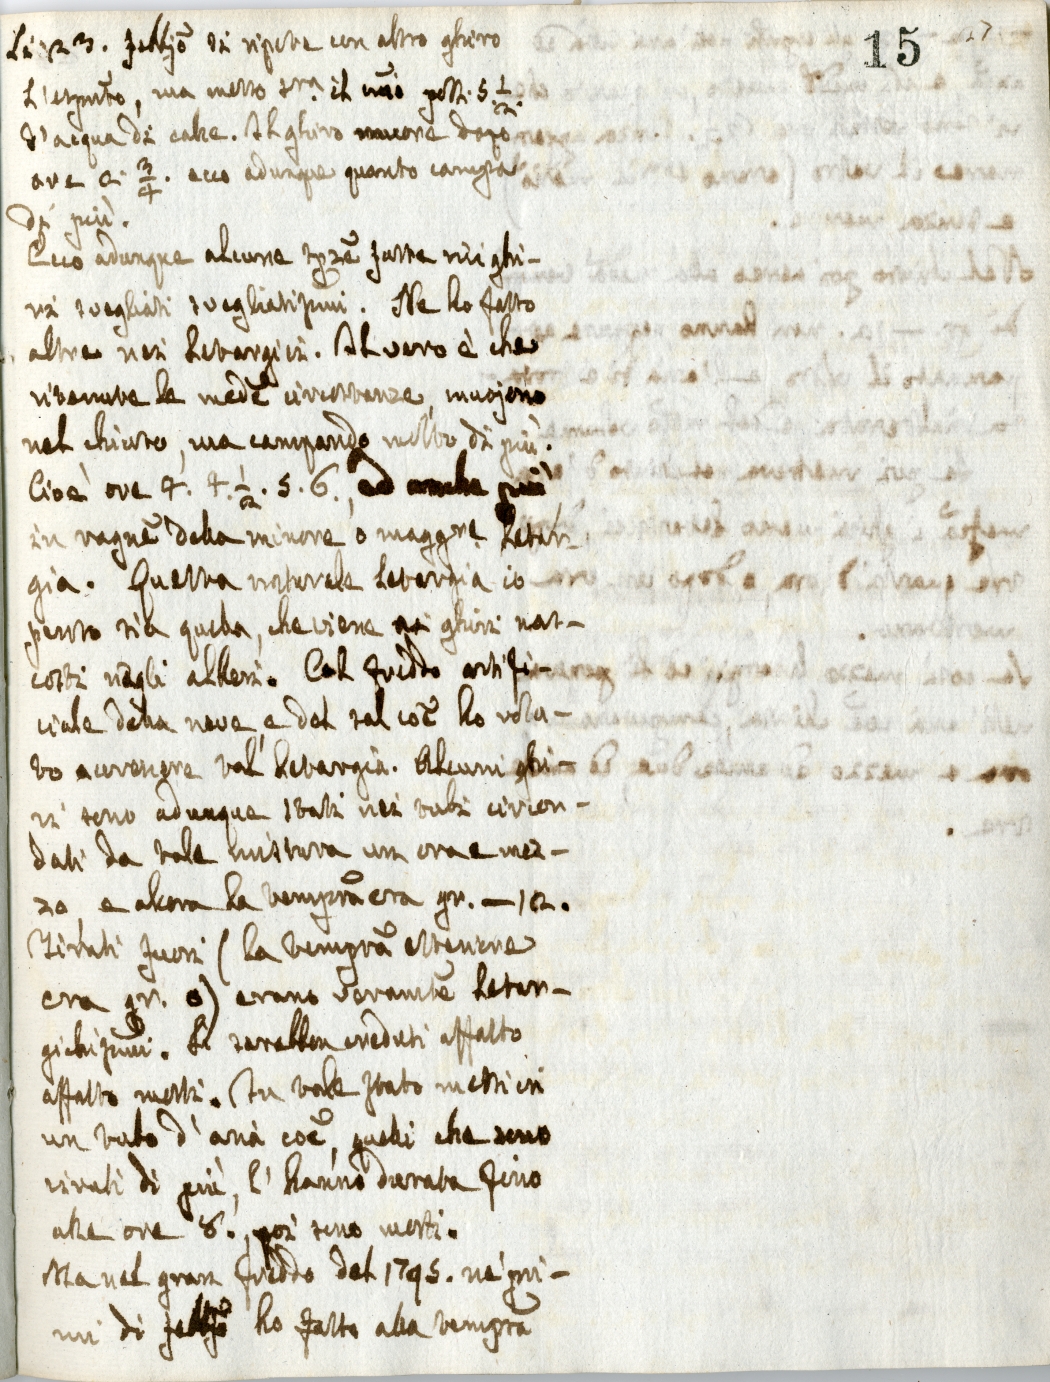 15
27
Li 23. febbjō si ripete con altro ghiro
l'esperto, ma metto sra il mō poll. 5 1/2.
d'acqua di calce. Il ghiro muore dopo
ore e 3/4. ecco adunque quanto campa
di più.
Ecco adunque alcune spze fatte nei ghi-
ri svegliati svegliatissimi. Ne ho fatto
altre nei letargici. Il vero è che
ritenute le mede circostanze, muojono
nel chiuso, ma campando molto di più.
Cioè ore 4. 4. 1/2. 5. 6., ed anche più
in ragne della minore o maggre letar-
gia. Questa naturale letargia io
penso sia quella, che viene ai ghiri nas-
costi negli alberi. Col freddo artifi-
ciale della neve, e del sal coe ho volu-
to accrescere tal letargia. Alcuni ghi-
ri sono adunque stati nei tubi circon-
dati da tale mistura un ora e mez-
za, e allora la temprā era gr. — 12.
Tirati fuori (la temprā esteriore
era gr. 0) erano veramte letar-
gichissimi. Si sarebbon creduti affatto
affatto morti. In tale stato messi in
un tubo d'aria coe, quelli che sono
vivuti di più, l'hanno durata fino
alle ore 8., poi sono morti.
Ma nel gran freddo del 1795. ne' pri-
mi di febbjō ho fatto alla temprā